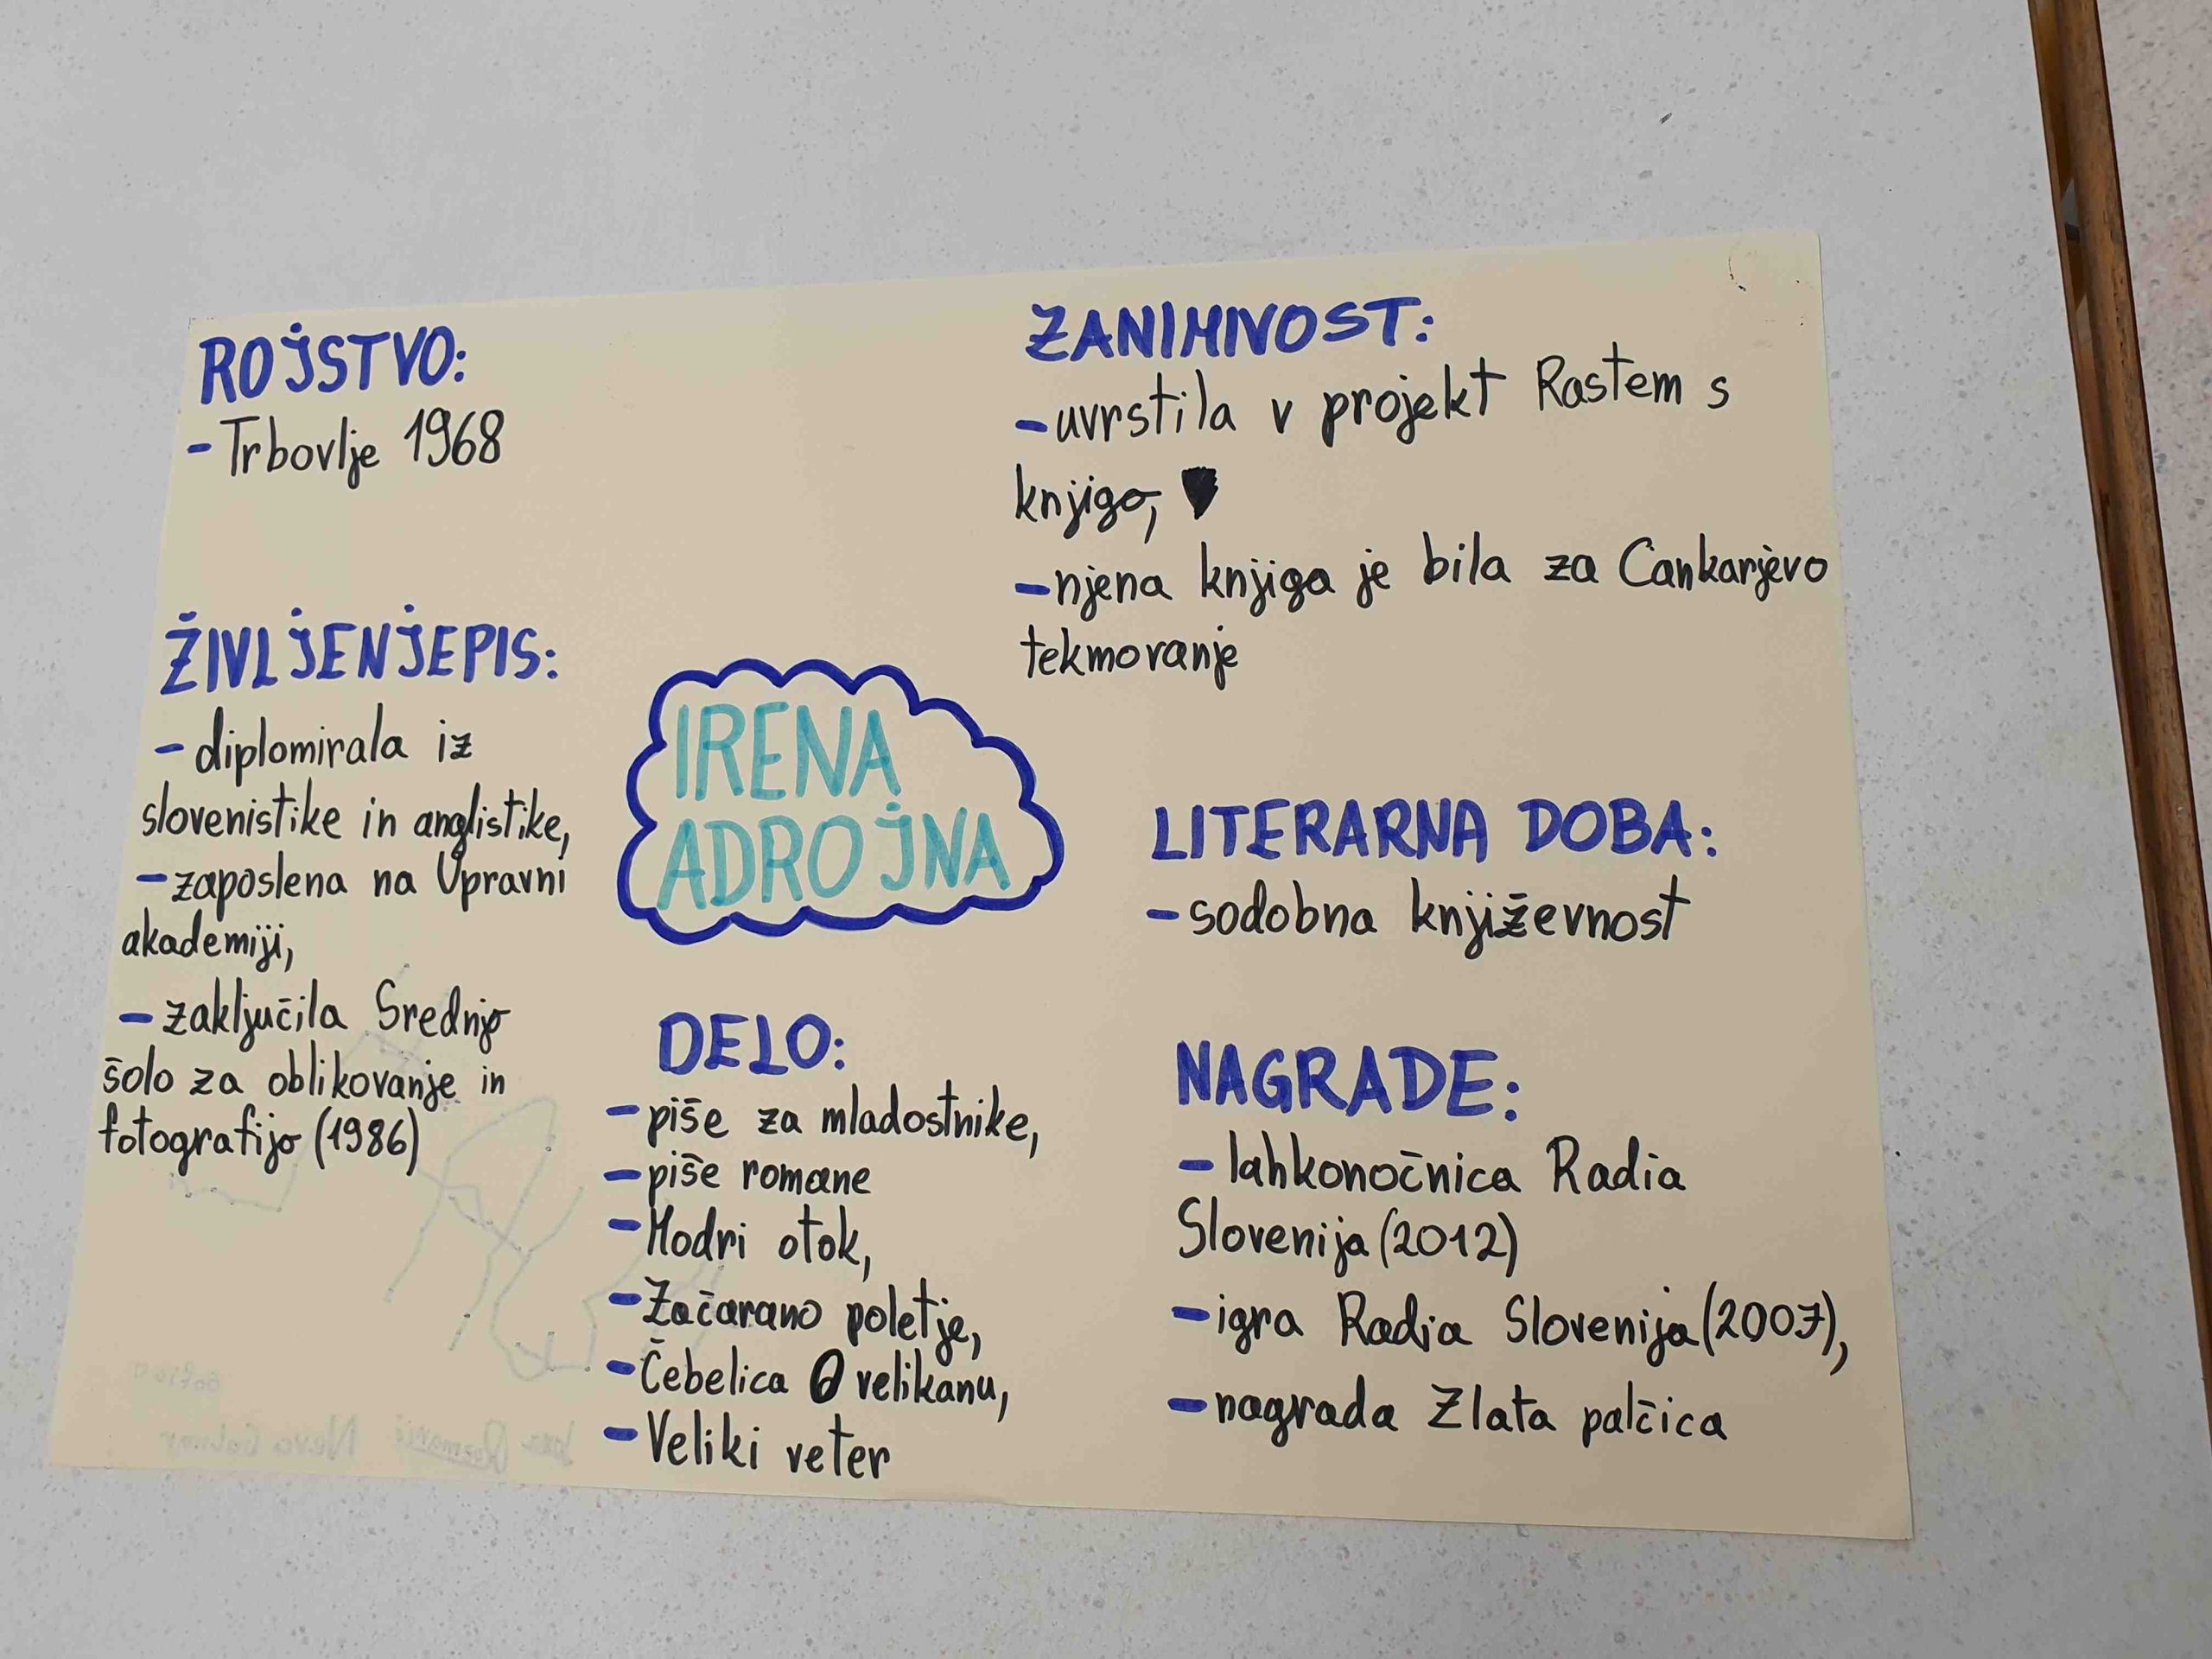 ROJSTVO:
- Trbovlje 1968
ŽIVLJENJEPIS:
- diplomirala iz
slovenistike in anglistike,
- zaposlena na Upravni
akademiji,
- zaključila Srednjo
šolo za oblikovanje in
fotografijo (1986)
IRENA
ADROJNA
DELO:
- piše za mladostnike,
- piše romane
- Modri otok,
- Začarano poletje,
- Čebelica O velikanu,
- Veliki veter
ZANIMIVOST:
- uvrstila v projekt Rastem s
knjigo,
- njena knjiga je bila za Cankarjevo
tekmovanje
LITERARNA DOBA:
- sodobna književnost
NAGRADE:
- lahkonočnica Radia
Slovenija (2012)
- igra Radia Slovenija (2007),
- nagrada Zlata palčica